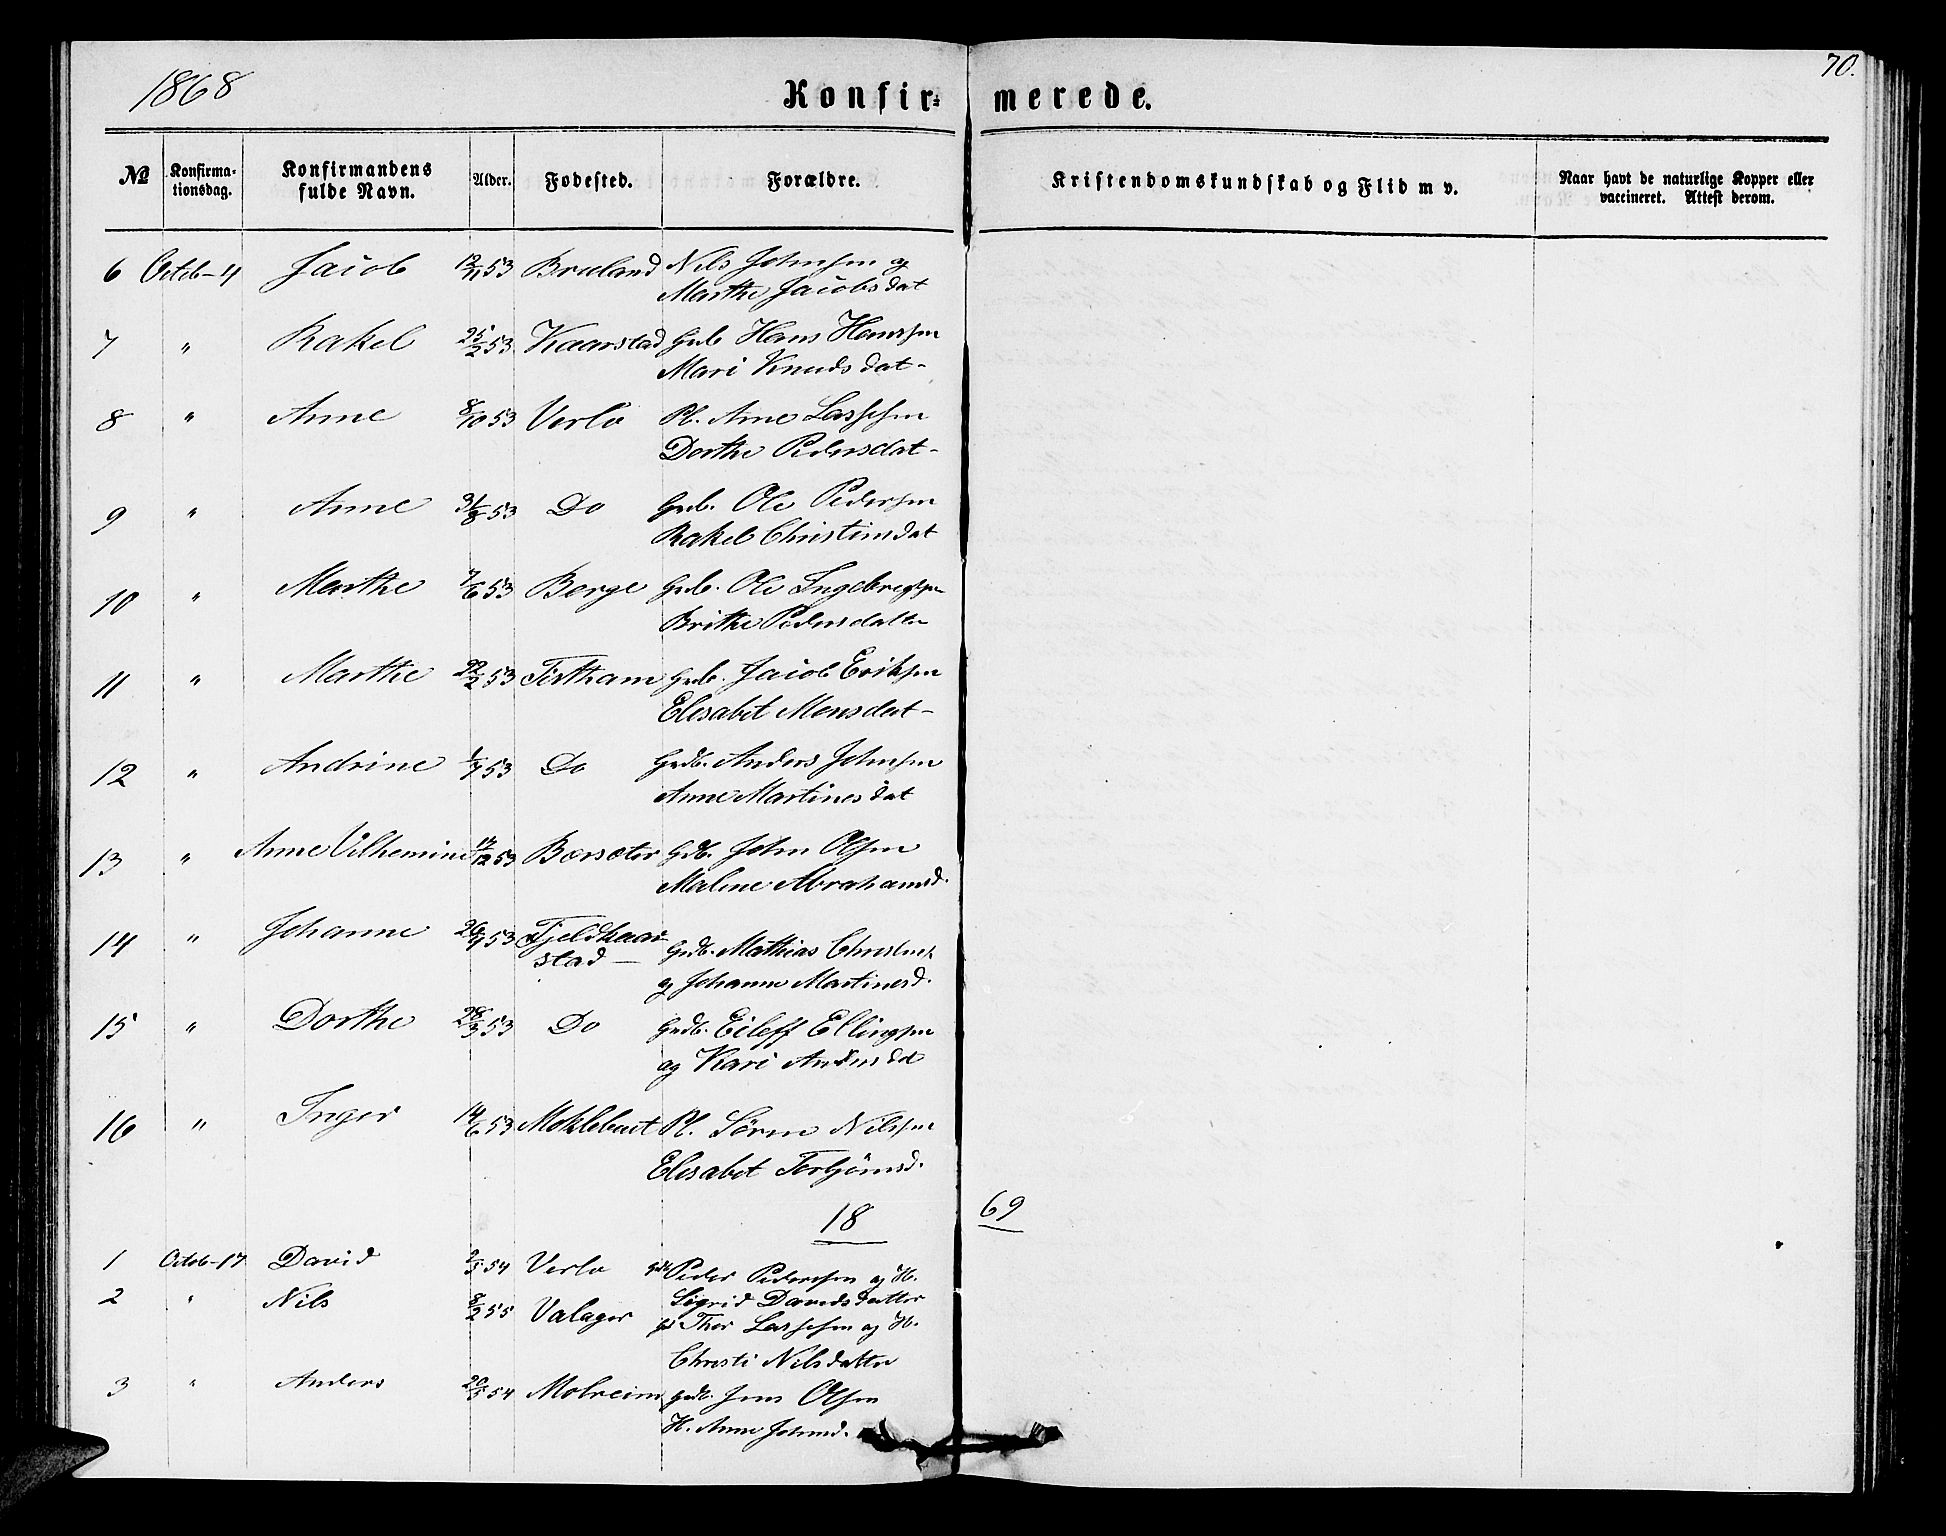 1868
Konfir- merede.
70.
№ Konfirma-
tionsdag. Konfirmandens
fulde Navn. Alder. Fodested. Forældre. Kristendomskundskab og Flid m v. Naar havt de naturlige Kopper eller
vaccineret. Attest derom.
6 Octob-4 Jacob 12/11 53 Braland Nils Johnsen og
Marthe Jacobsdat
7 " Rakel 25/2 53 Kaarstad Grb Hans Hansen
Mari Knudsdat-
8 " Anne 8/10 53 Verlo Pl. Arne Lassesen
Dorthe Pedersdat-
9 " Anne 31/8 53 Do Grb. Ole Pedersen
Rakel Christensdat
10 " Marthe 7/6 53 Berge Grb. Ole Ingebregtsen
Brithe Pedersdatter
11 " Marthe 22/2 53 Tistham Grb. Jacob Eriksen
Elesabet Monsdat-
12 " Andrine 1/7 53 Do Grdb. Anders Johnsen
Anne Martinesdat
13 " Anne Vilhemine 12/12 53 Børsæter Gdb. John Olsen
Malene Abrahamsd.
14 " Johanne 26/9 53 Fjeldkaar-
stad - Grdb. Mathias
og Johanne Martinesd.
15 " Dorthe 28/3 53 Do Grdb. Eileff Ellingsen
og Kari
16 " Inger 14/6 53 Moklebust Pl. Sören Nilssen
Elesabet Torbjörnsd.
18 69
1 Octob-17 David 2/5 54 Verlo Peder Pedersen og H.
Sigrid Davidsdatter
2 " Nils 8/2 55 Valager Thor Lassesen og H.
Christi Nilsdatter
3 " Anders 20/5 54 Molreim Grdb. Jens Olsen
H. Anne Johnsd.